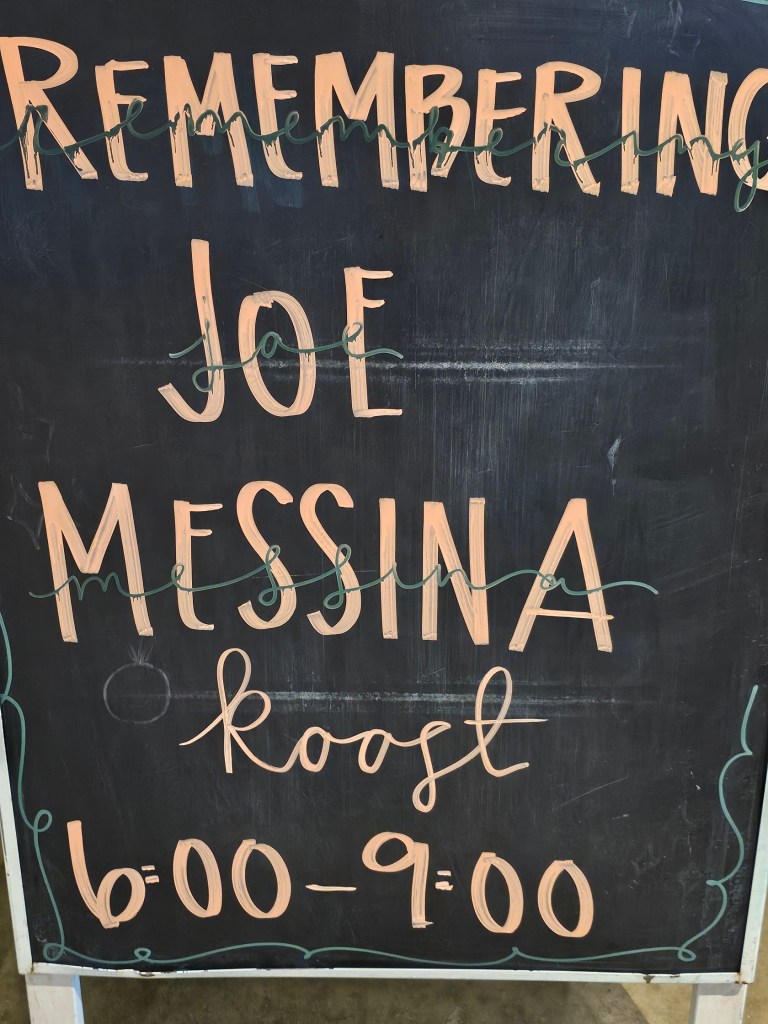 REMEMBERING
remembering
JOE
joe
MESSINA
messina
koost
6:00-9:00